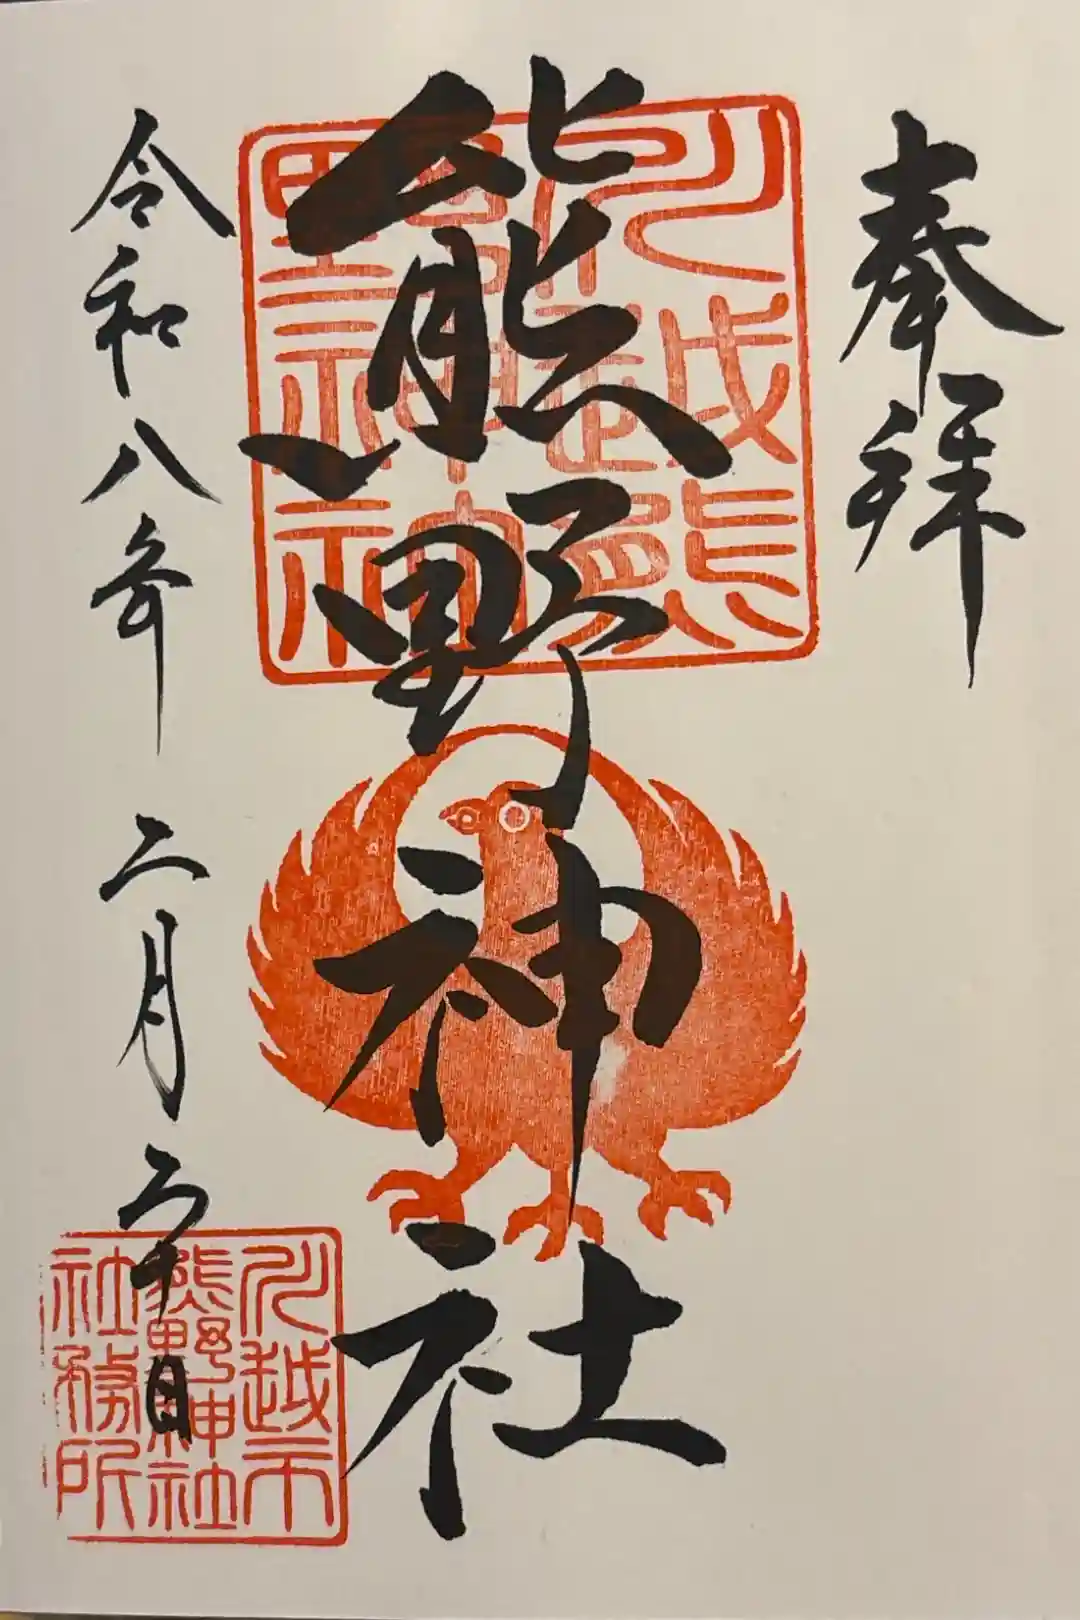 奉拝
熊野神社
令和八年 二月二十日
川越熊
川越市
熊野神社
社務所